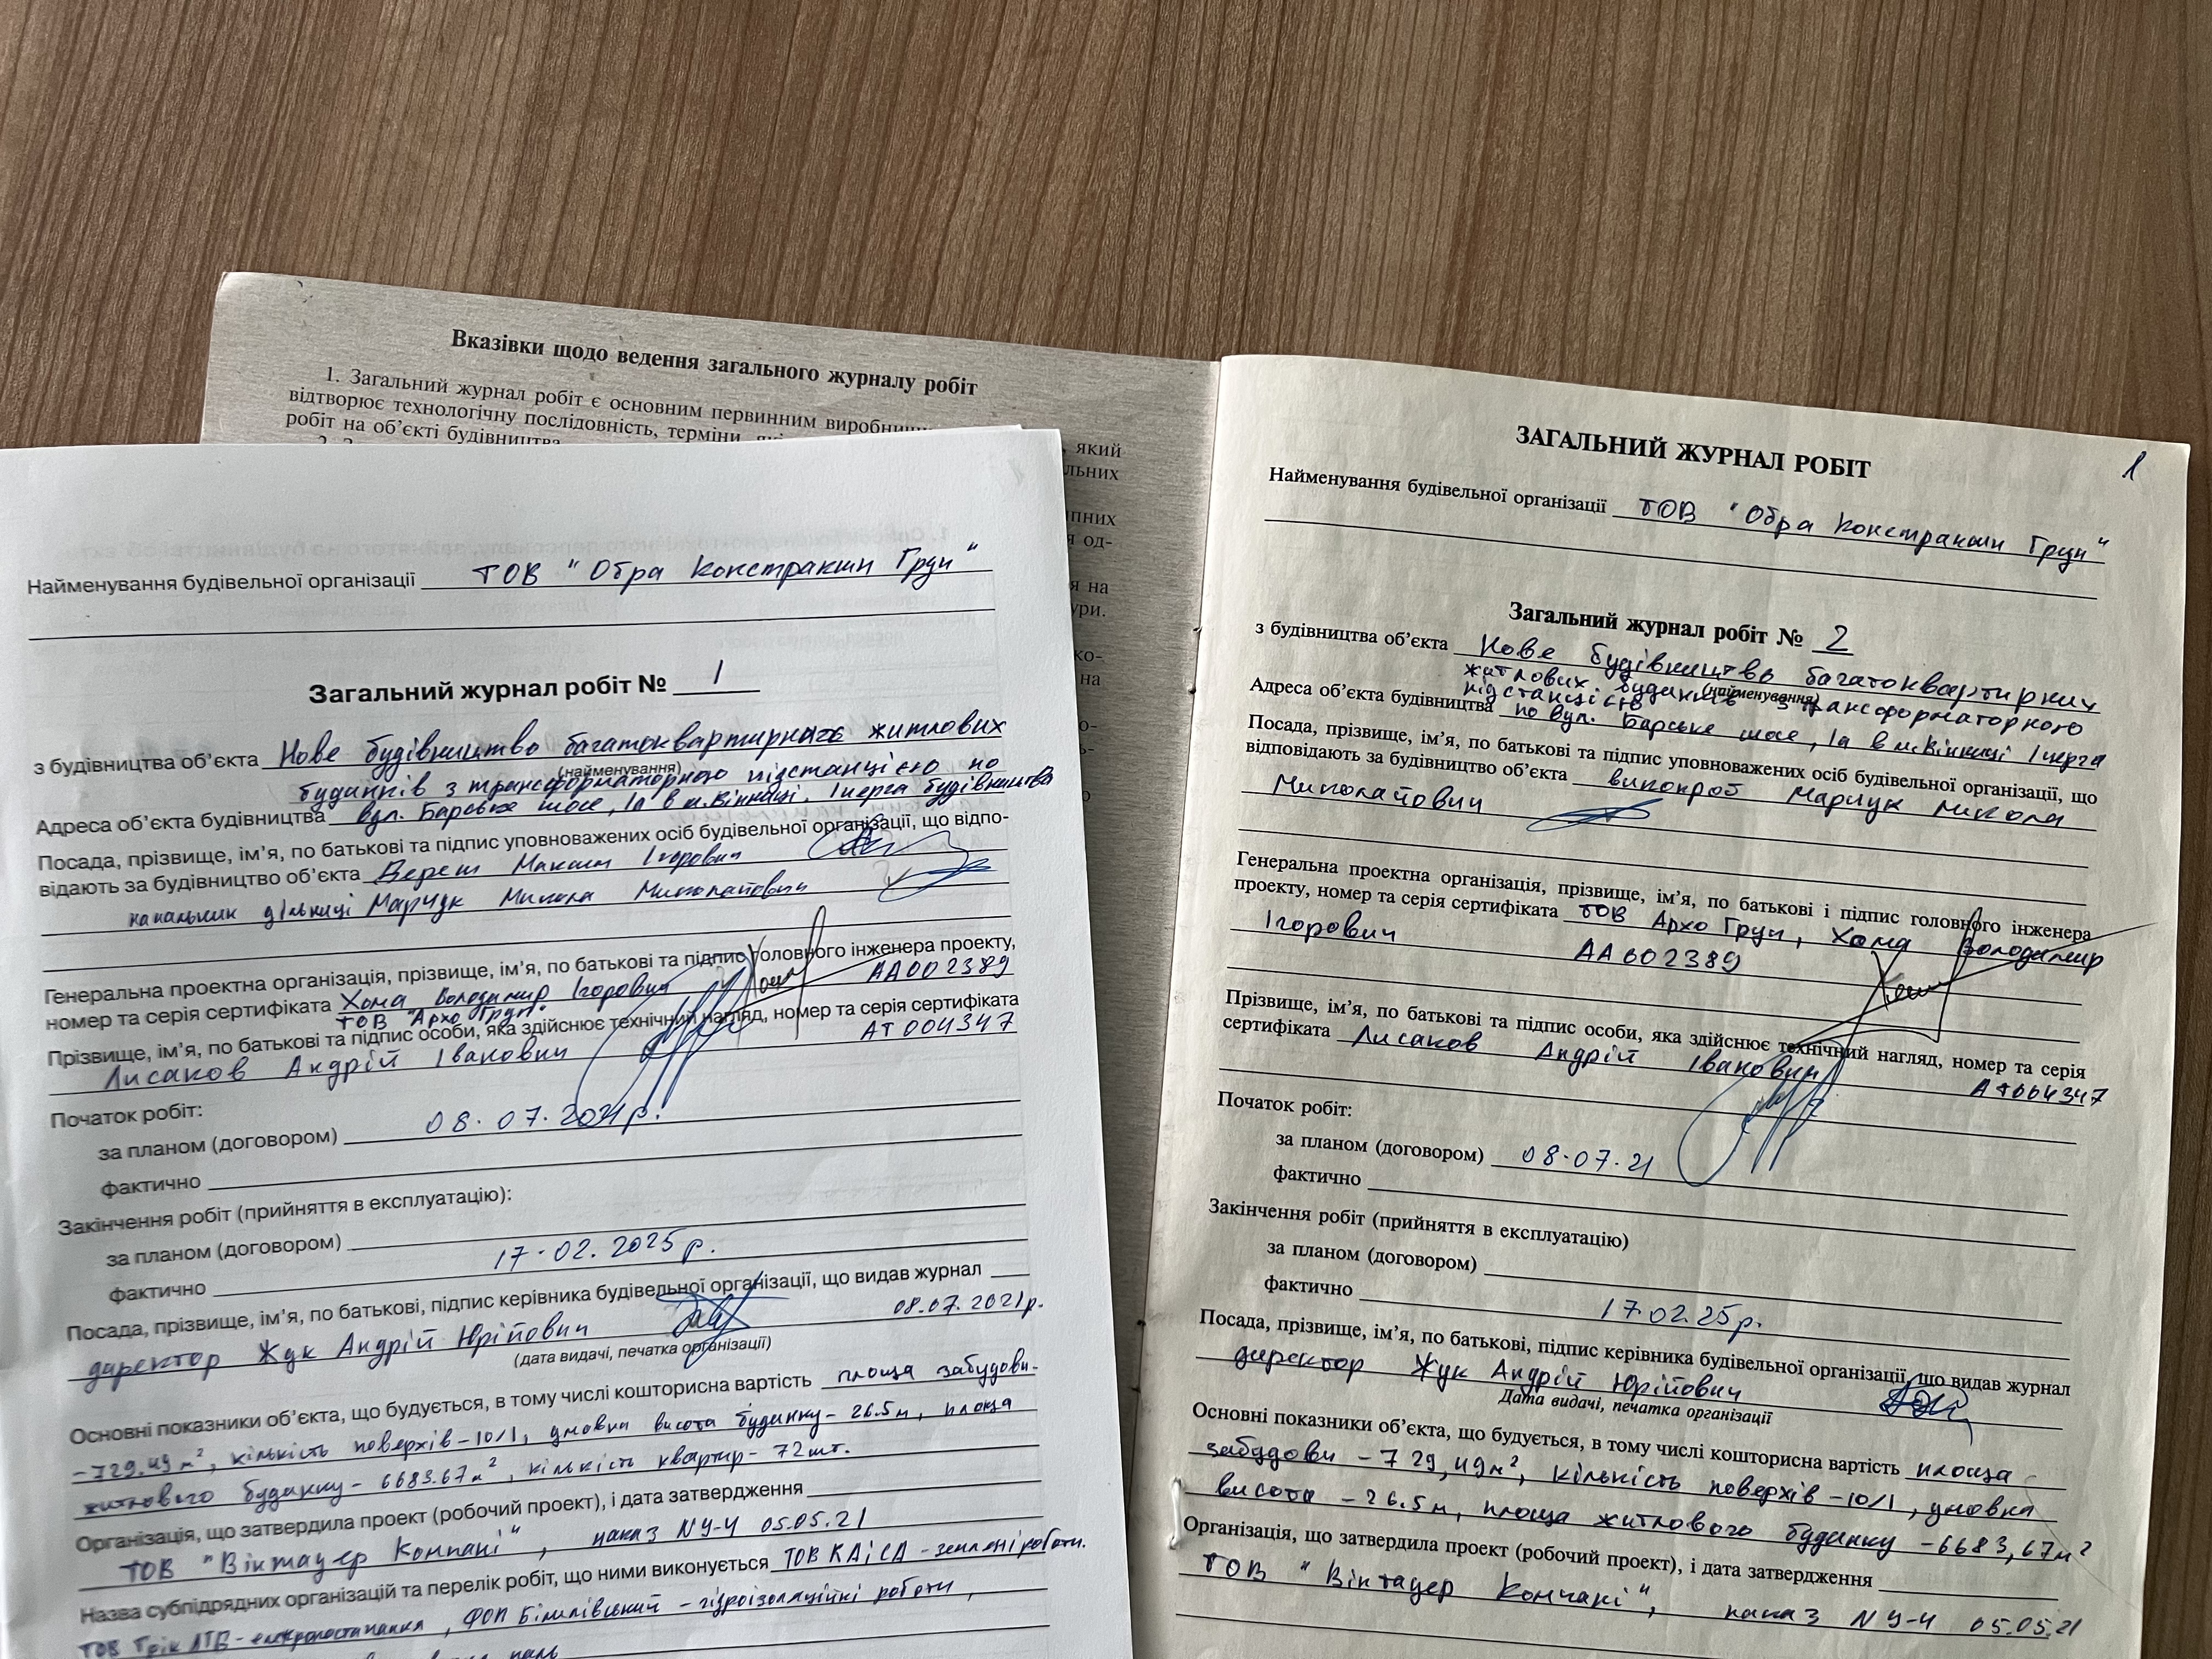 Вказівки щодо ведення загального журналу робіт
1. Загальний журнал робіт є основним первинним виробничим
який
відтворює технологічну послідовність, терміни, які
льних
робіт на об'єкті будівництва
пних
я од-
я на
ури.
ко-
на
Найменування будівельної організації ТОВ "Обра Констракшн Груп"
Загальний журнал робіт № 1
з будівництва об'єкта Нове будівництво багатоквартирних житлових
(найменування)
будинків з трансформаторною підстанцією по
Адреса об'єкта будівництва вул. Барське шосе, 1а в м.Вінниці. І черга будівництва
Посада, прізвище, ім'я, по батькові та підпис уповноважених осіб будівельної організації, що відпо-
відають за будівництво об'єкта Верет Максим Ігорович
начальник дільниці Марчук Микола Миколайович
Генеральна проектна організація, прізвище, ім'я, по батькові та підпис головного інженера проекту,
номер та серія сертифіката Хома Володимир Ігорович АА002389
ТОВ "Архо Груп"
Прізвище, ім'я, по батькові та підпис особи, яка здійснює технічний нагляд, номер та серія сертифіката
Лисаков Андрій Іванович АТ004347
Початок робіт:
за планом (договором) 08.07.2021р.
фактично
Закінчення робіт (прийняття в експлуатацію):
за планом (договором)
фактично 17.02.2025р.
Посада, прізвище, ім'я, по батькові, підпис керівника будівельної організації, що видав журнал
директор Жук Андрій Юрійович 08.07.2021р.
(дата видачі, печатка організації)
Основні показники об'єкта, що будується, в тому числі кошторисна вартість площа забудови-
-729.49 м², кількість поверхів-10/1, умовна висота будинку-26.5м, площа
житлового будинку-6683.67м², кількість квартир-72шт.
Організація, що затвердила проект (робочий проект), і дата затвердження
ТОВ "Вінтауер Компані", наказ N 9-Ч 05.05.21
Назва субпідрядних організацій та перелік робіт, що ними виконується ТОВ КАіСА - земляні роботи.
ТОВ Грін ЛТВ-електропостачання, ФОП Білилівський - гідроізоляційні роботи,
паль
1
ЗАГАЛЬНИЙ ЖУРНАЛ РОБІТ
Найменування будівельної організації ТОВ "Обра Констракшн Груп"
Загальний журнал робіт № 2
з будівництва об'єкта Нове будівництво багатоквартирних
(найменування)
житлових будинків з трансформаторною
підстанцією
Адреса об'єкта будівництва по вул. Барське шосе, 1а в м.Вінниці І черга
Посада, прізвище, ім'я, по батькові та підпис уповноважених осіб будівельної організації, що
відповідають за будівництво об'єкта виконроб Марчук Микола
Миколайович
Генеральна проектна організація, прізвище, ім'я, по батькові і підпис головного інженера
проекту, номер та серія сертифіката ТОВ Архо Груп, Хома Володимир
Ігорович АА002389
Прізвище, ім'я, по батькові та підпис особи, яка здійснює технічний нагляд, номер та серія
сертифіката Лисаков Андрій Іванович
АТ004347
Початок робіт:
за планом (договором) 08.07.21
фактично
Закінчення робіт (прийняття в експлуатацію)
за планом (договором)
фактично 17.02.25р.
Посада, прізвище, ім'я, по батькові, підпис керівника будівельної організації, що видав журнал
директор Жук Андрій Юрійович
Дата видачі, печатка організації
Основні показники об'єкта, що будується, в тому числі кошторисна вартість площа
забудови -729,49м², кількість поверхів-10/1, умовна
висота -26.5м, площа житлового будинку -6683,67м²
Організація, що затвердила проект (робочий проект), і дата затвердження
ТОВ "Вінтауер Компані", наказ N 9-Ч 05.05.21